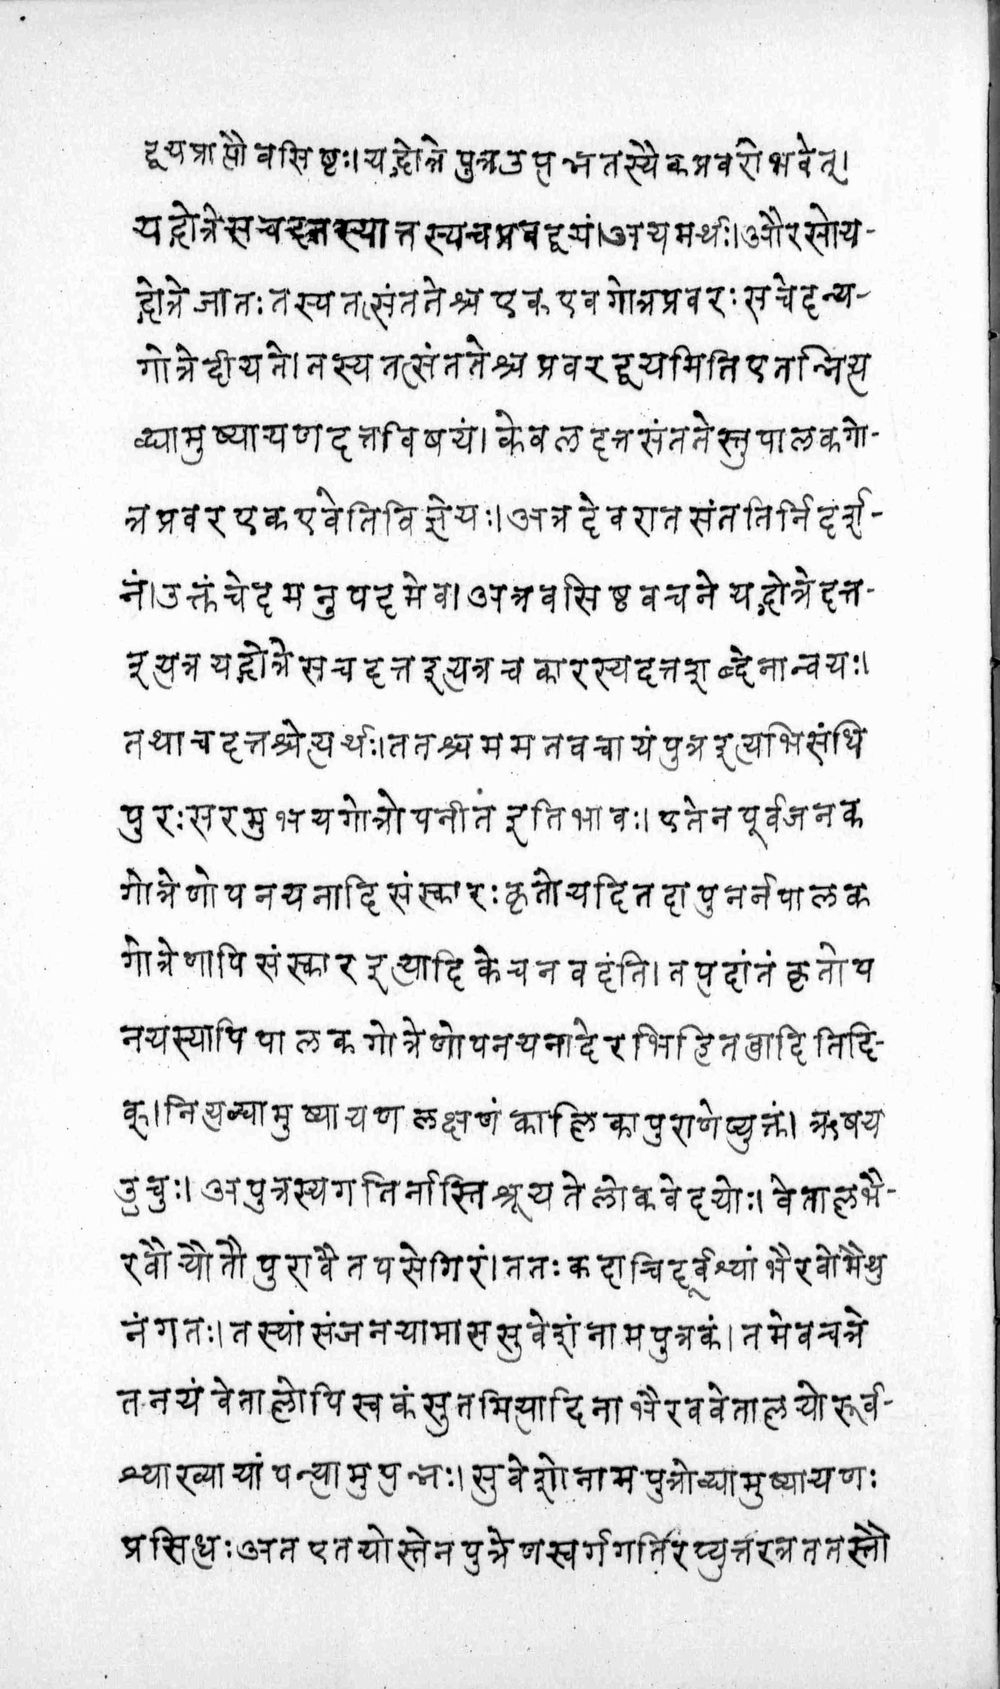 द्वयप्राप्तौ वसिष्ठः। यद्गोत्रे पुत्र उत्पन्नतस्यैकप्रवरो भवेत्।
यद्गोत्रेसचदत्तस्यात्तस्यचप्रवरद्वयं। अयमर्थः। औरसोय-
द्गोत्रे जातः तस्य तत्संततेश्च एक एव गोत्रप्रवरः सचेदन्य-
गोत्रे दीयते। तस्य तत्संततेश्च प्रवरद्वयमिति एतन्नित्य
द्व्यामुष्यायणदत्तविषयं। केवलदत्तसंततेस्तु पालकगो-
त्रप्रवर एक एवेति विज्ञेयः। अत्र देवरातसंततिर्निदर्श-
नं। उक्तं चेदमनुपदमेव। अत्र वसिष्ठवचने यद्गोत्रे दत्त-
इत्यत्र यद्गोत्रे सच दत्त इत्यत्र चकारस्य दत्तशब्देनान्वयः।
तथा च दत्तश्चेत्यर्थः। ततश्च मम तव चायं पुत्र इत्यभिसंधि
पुरःसरमुभयगोत्रोपनीत इति भावः। एतेन पूर्वजनक
गोत्रेणोपनयनादिसंस्कारः कृतो यदि तदा पुनर्न पालक
गोत्रेणापि संस्कार इत्यादि केचन वदंति। तत्पदांतं कृतोप
नयस्यापि पालकगोत्रेणोपनयनादेरभिहितत्वादिति दि-
क्। नित्यद्व्यामुष्यायणलक्षणं कालिकापुराणेप्युक्तं। ऋषय
उचुः। अपुत्रस्यगतिर्नास्ति श्रूयते लोकवेदयोः। वेतालभै-
रवौ यौ तौ पुरा वै तपसे गिरं। ततः कदाचिदूर्वश्यां भैरवो मैथु
नं गतः। तस्यां संजनयामास सुवेशं नाम पुत्रकं। तमेव चक्रे
तनयं वेतालोपि स्वकं सुतमित्यादिना भैरववेतालयोरूर्व-
श्याख्यायां पत्न्यामुत्पन्नः। सुवेशो नाम पुत्रो द्व्यामुष्यायणः
प्रसिद्धः अत एतयोस्तेन पुत्रेण स्वर्गगतिरप्युत्तरत्र ततस्तौ